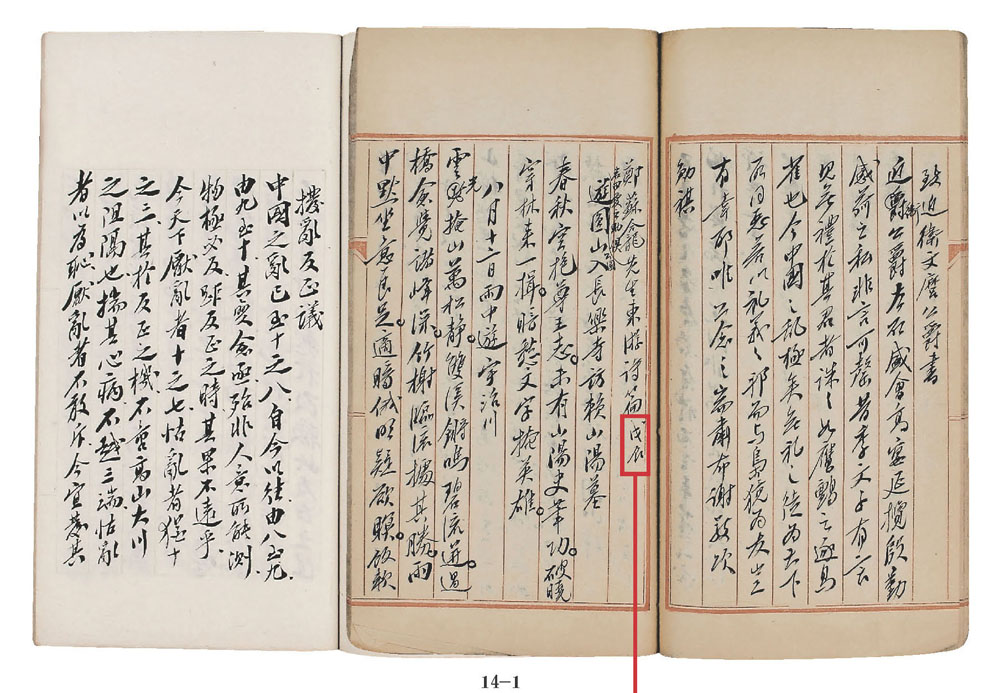 致近衛文麿公爵書
近衛公爵左右盛會高宴延攬殷勤
感荷之私非言可罄昔季文子有言
見無禮於其君者誅之如鷹鸇之逐鳥
雀也今中國之亂極矣無禮之徒為天下
所同惡若以禮義之邦而與為友豈
有幸耶唯公念之耑肅布謝敬頌
勛祺
鄭蘇龕先生東游詩篇 戊辰
遊圓山入長樂寺訪賴山陽墓
春秋空抱尊王志。未有山陽史筆功。破曉
穿林来一揖。暗愁文字掩英雄。
八月十二日雨中遊宇治川
雲光掩山萬松靜。雙溪鏘鳴碧流迸。過
橋愈覺諸峰深。竹榭臨流擾其勝。雨
中默坐意良足。適時俄明疑欲瞑。飯軟
撥亂反正議
中國之亂已至十之八自今以往由八至九
由九至十其變愈亟殆非人意所能測
物極必反歟反正之時其果不遠乎
今天下厭亂者十之七怙亂者猶十
之三其於反正之機不啻高山大川
之阻隔也揣其心病不越三端怙亂
者以為恥厭亂者不敢斥今宜其
14-1